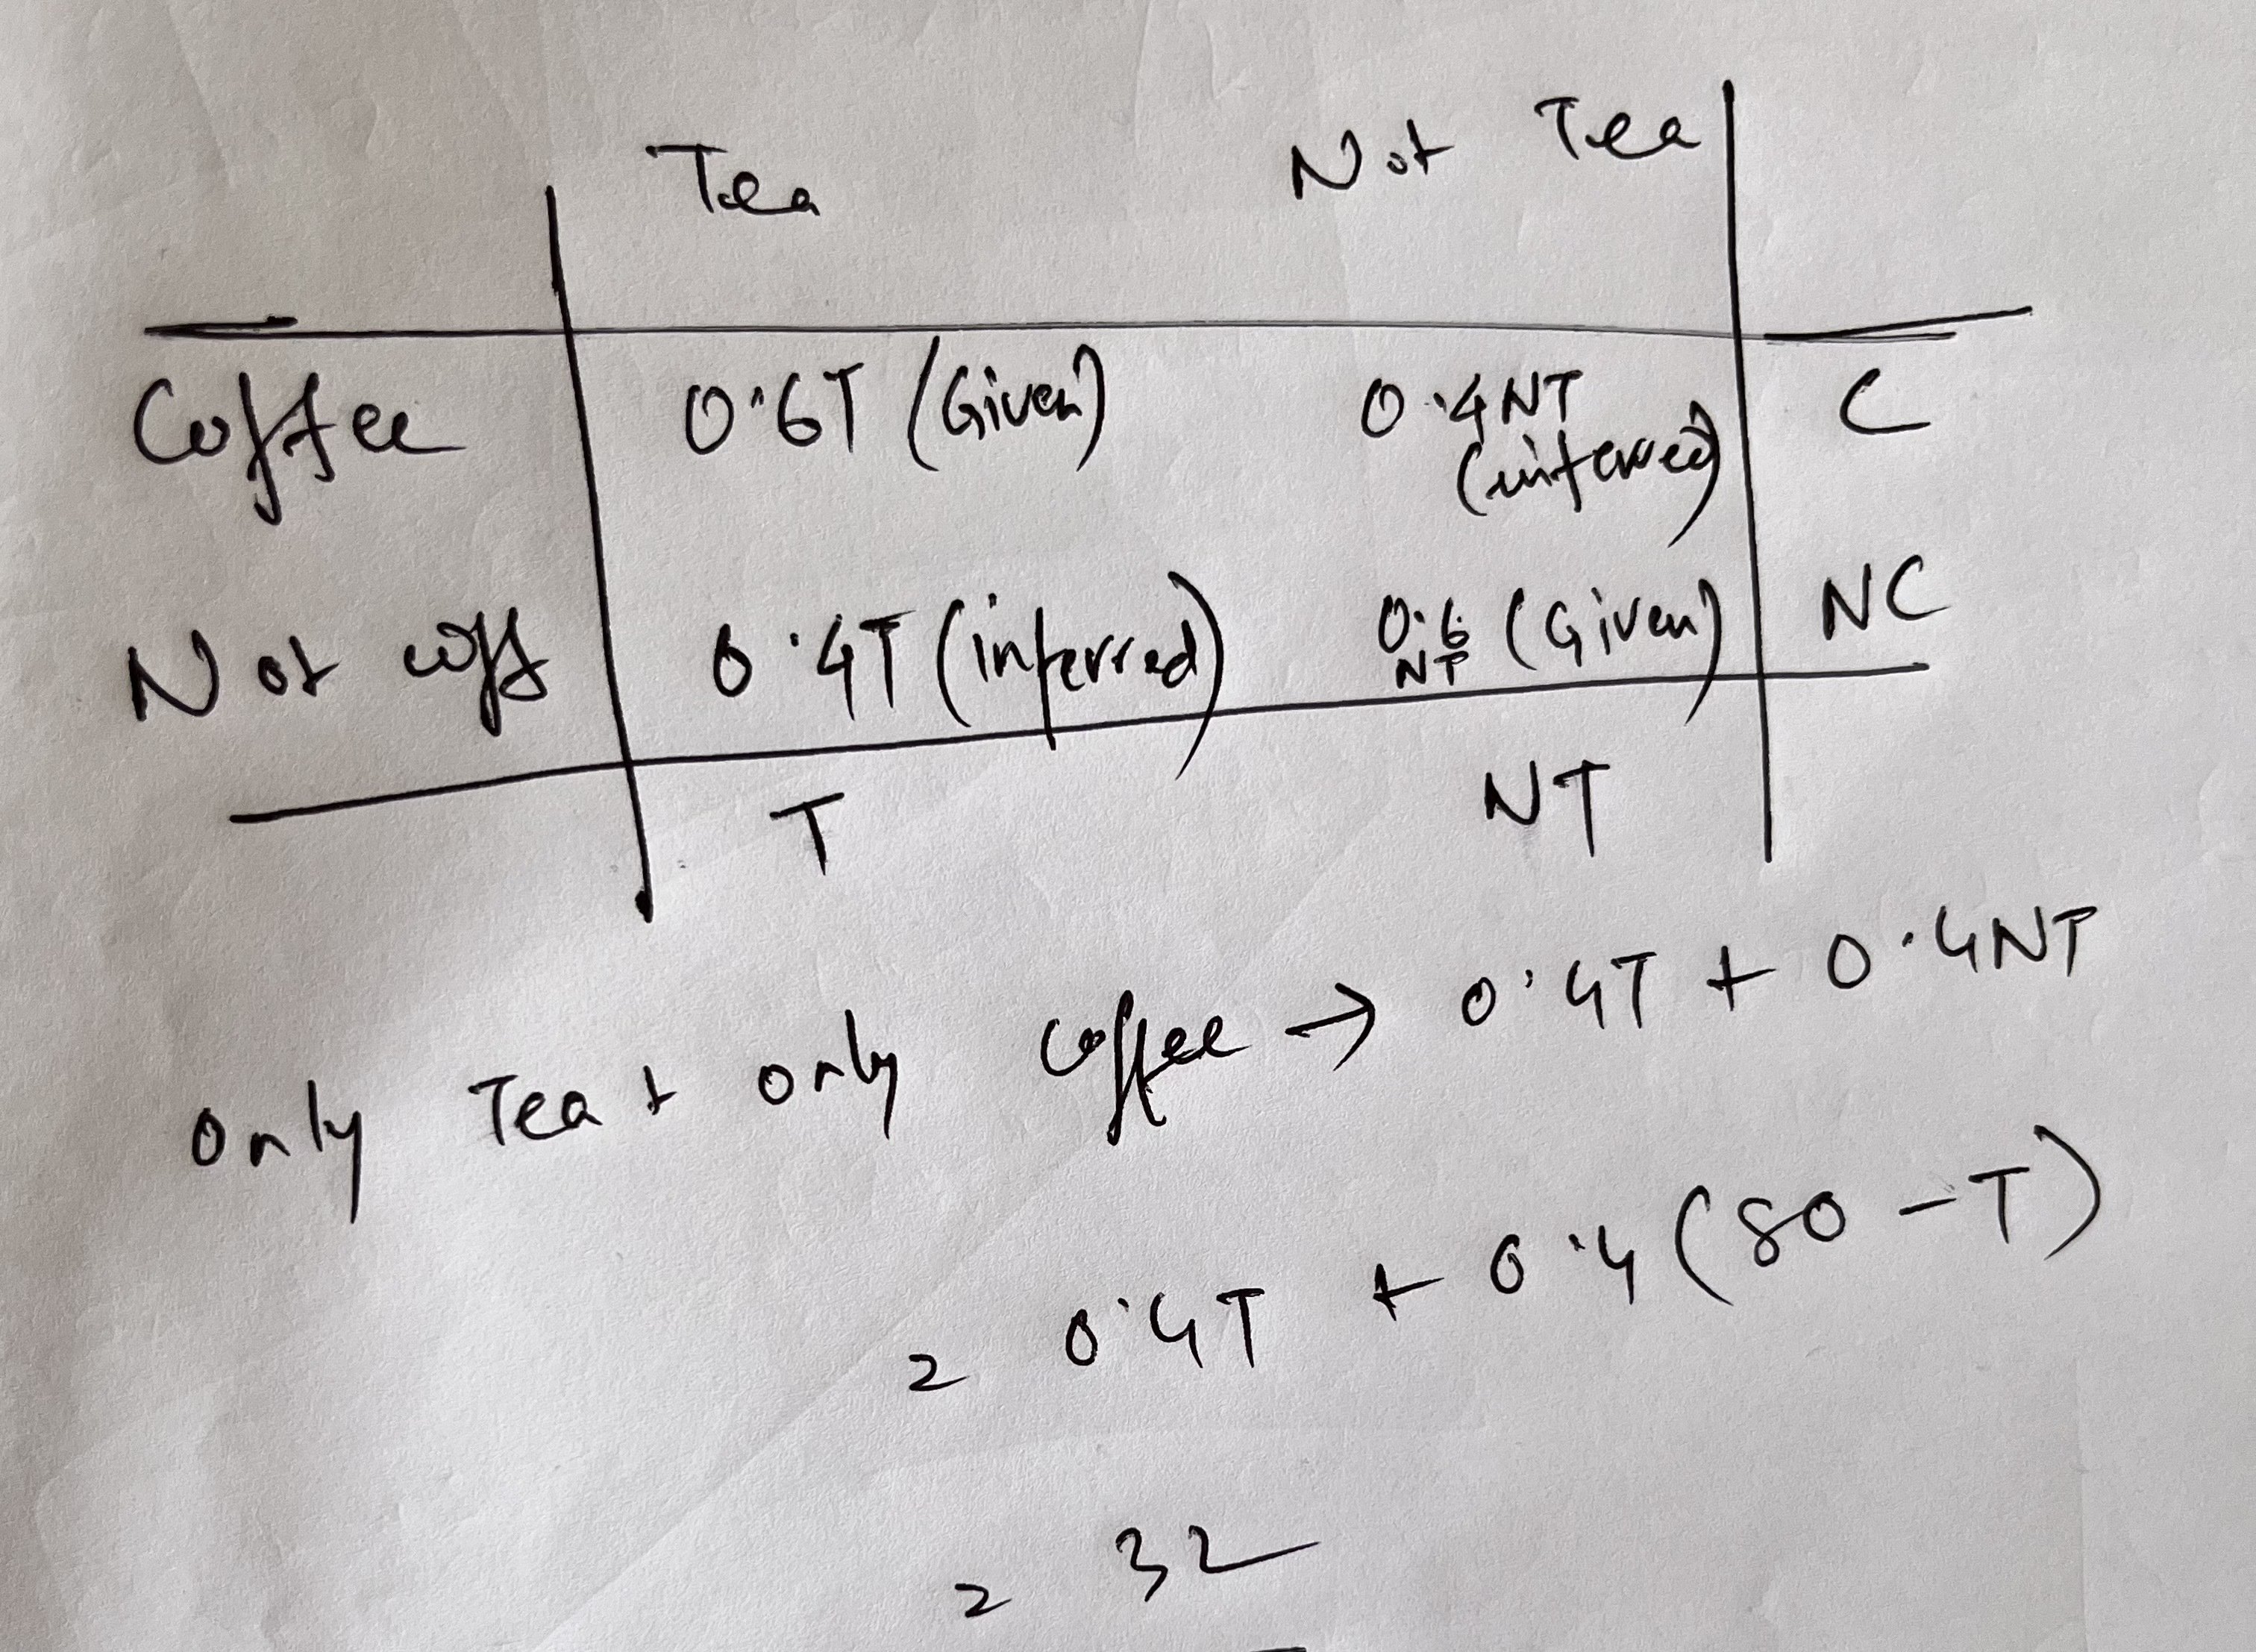 Tea Not Tea
Coffee 0.6T (Given) 0.4NT C
(inferred)
Not coff 0.4T (inferred) 0.6 (Given) NC
NT
T NT
Only Tea + only coffee → 0.4T + 0.4NT
= 0.4T + 0.4(80 - T)
= 32